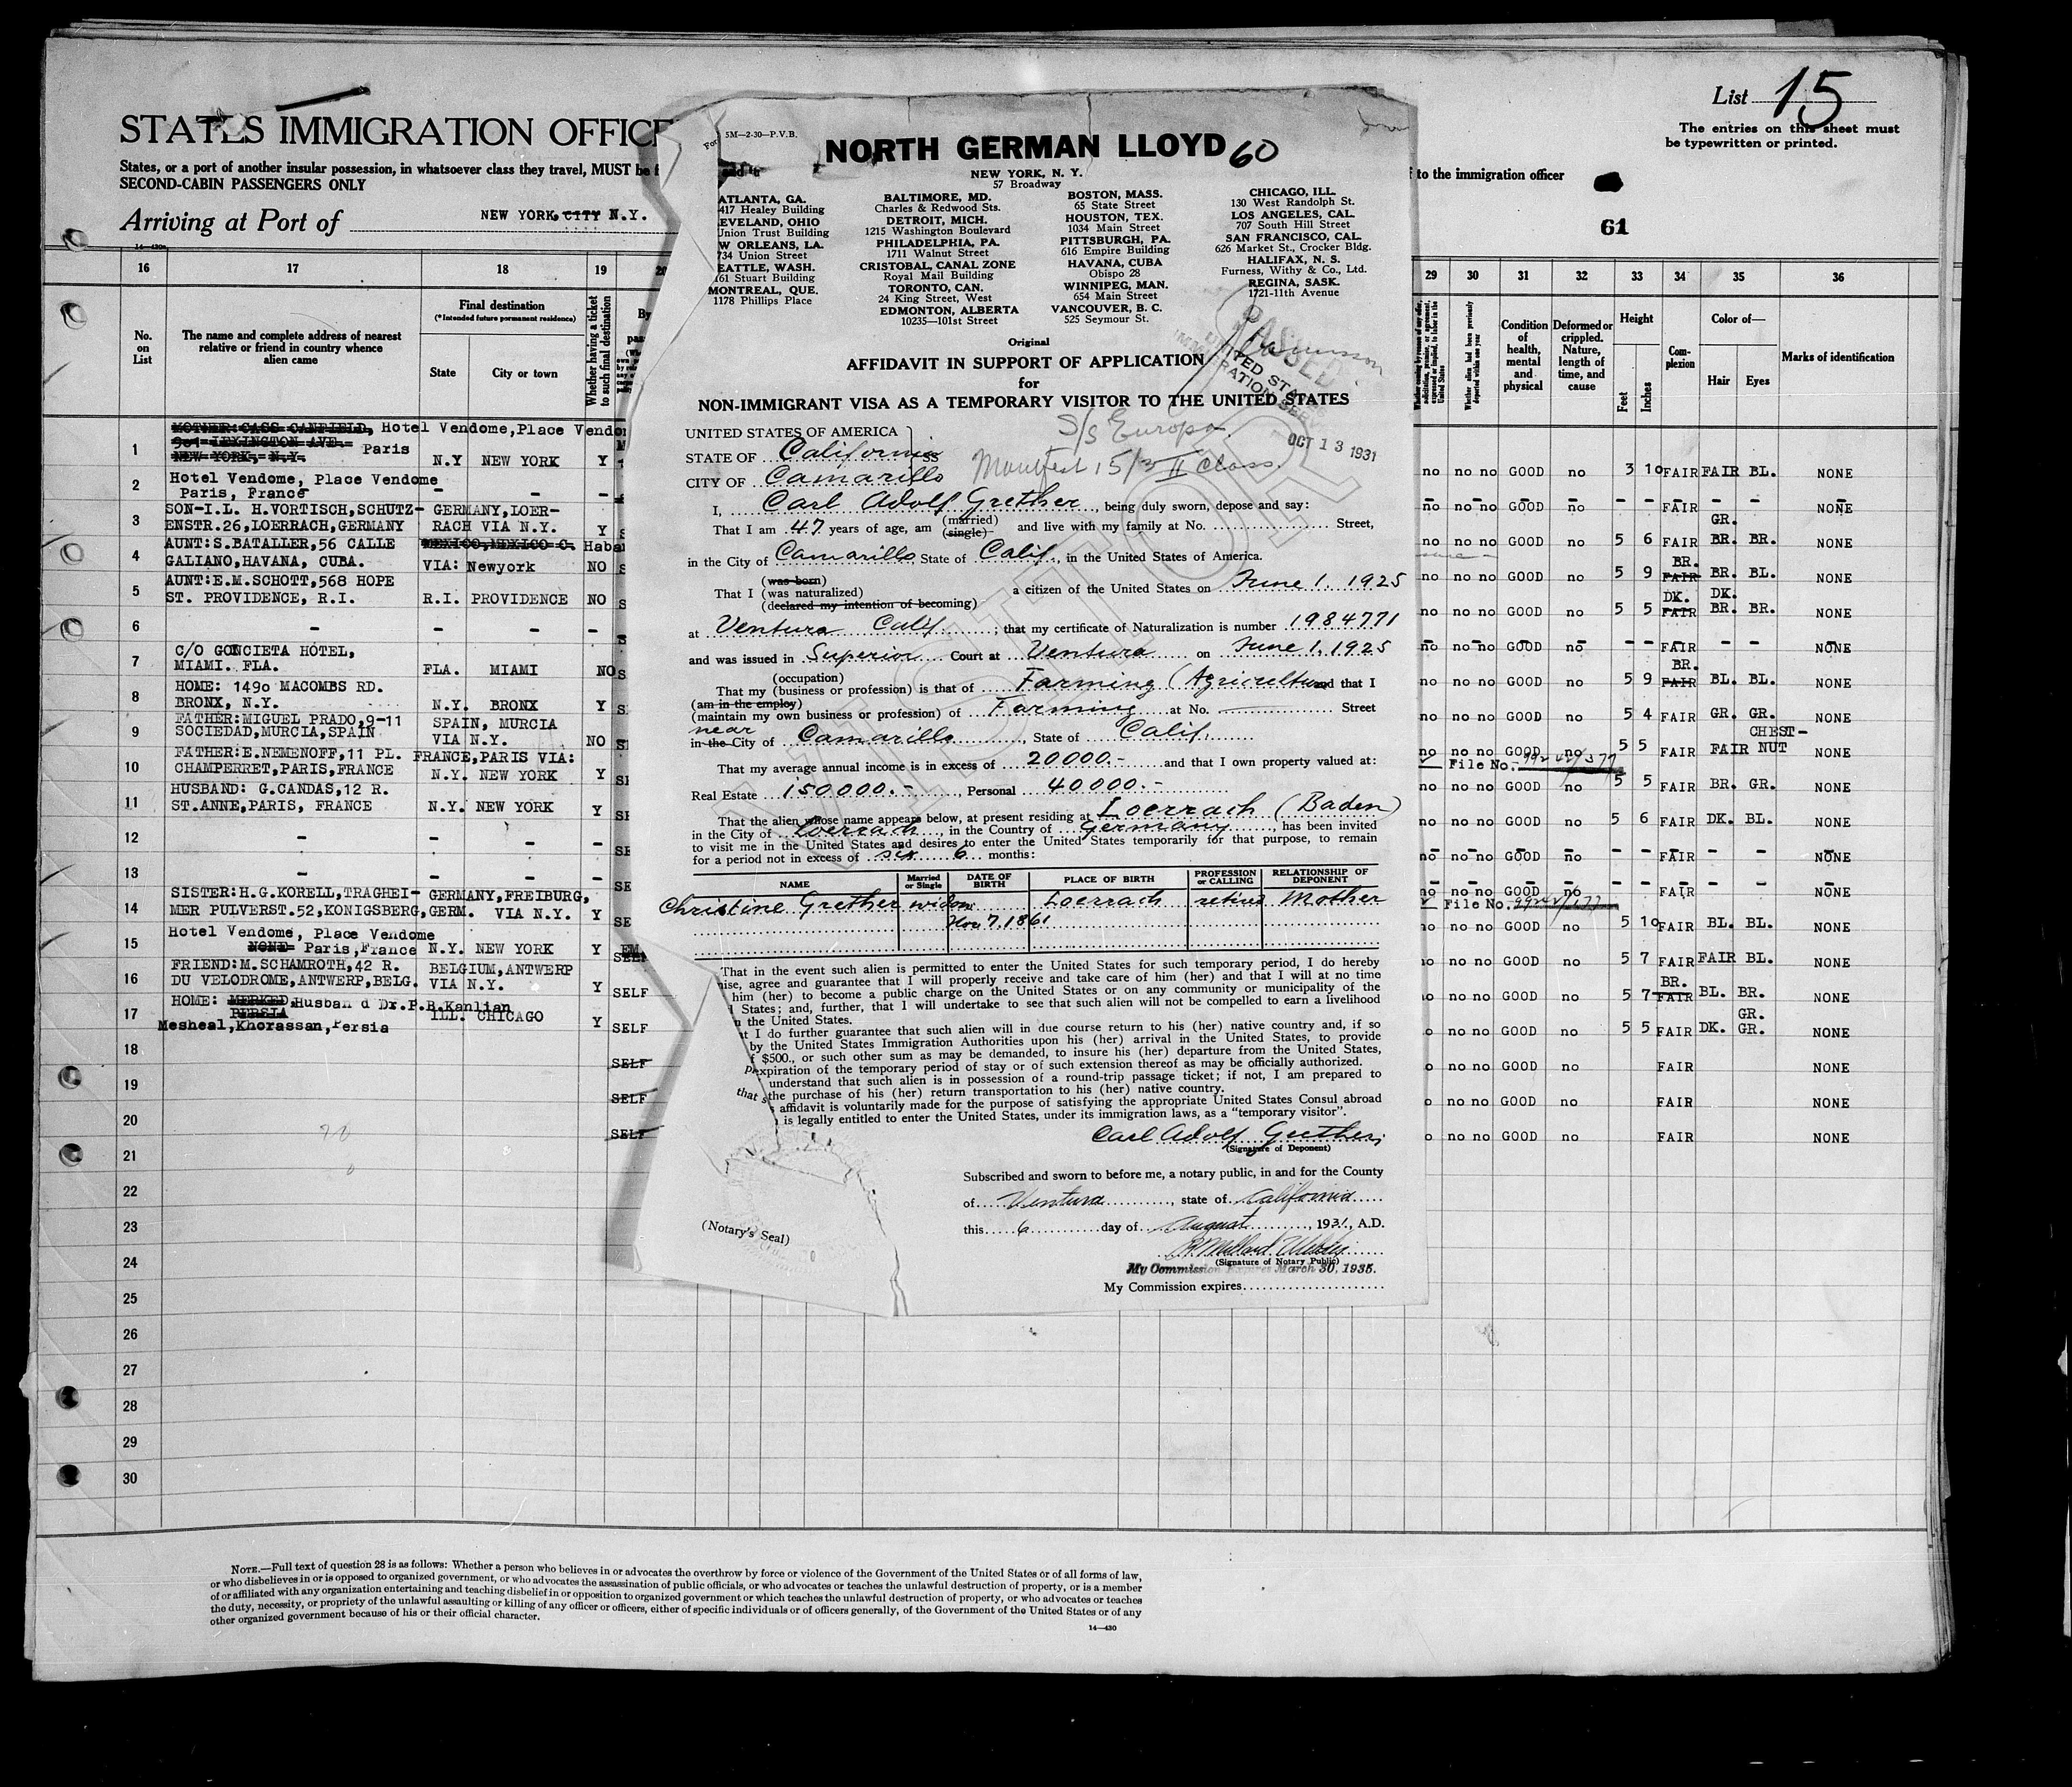 STATES IMMIGRATION OFFICE
States, or a port of another insular possession, in whatsoever class they travel, MUST be f
SECOND-CABIN PASSENGERS ONLY
Arriving at Port of NEW YORK, CITY N.Y.
List 15
The entries on this sheet must
be typewritten or printed.
to the immigration officer
61
14—430
16 17 18 19 20
No. on List
The name and complete address of nearest
relative or friend in country whence
alien came
Final destination
(*Intended future permanent residence)
State City or town
Whether having a ticket
to such final destination
By
1 MOTHER: CASS CANFIELD, Hotel Vendome, Place Vendo
901 LEXINGTON AVE.
NEW YORK, N.Y. Paris N.Y NEW YORK Y
2 Hotel Vendome, Place Vendome
Paris, France – – –
3 SON-I.L. H.VORTISCH,SCHUTZ- GERMANY,LOER-
ENSTR.26,LOERRACH,GERMANY RACH VIA N.Y. Y
4 AUNT:S.BATALLER,56 CALLE MEXICO,MEXICO C. Haba
GALIANO,HAVANA, CUBA. VIA: Newyork NO
5 AUNT:E.M.SCHOTT,568 HOPE
ST. PROVIDENCE, R.I. R.I. PROVIDENCE NO
6 – – – –
7 C/O GONCIETA HOTEL,
MIAMI. FLA. FLA. MIAMI NO
8 HOME: 1490 MACOMBS RD.
BRONX, N.Y. N.Y. BRONX Y
9 FATHER:MIGUEL PRADO,9-11 SPAIN, MURCIA
SOCIEDAD,MURCIA,SPAIN VIA N.Y. NO
10 FATHER:E.NEMENOFF,11 PL. FRANCE,PARIS VIA:
CHAMPERRET,PARIS,FRANCE N.Y. NEW YORK Y
11 HUSBAND: G.CANDAS,12 R.
ST.ANNE,PARIS, FRANCE N.Y. NEW YORK Y
12 – – – –
13 – – – –
14 SISTER:H.G.KORELL,TRAGHEI- GERMANY,FREIBURG,
MER PULVERST.52,KONIGSBERG,GERM. VIA N.Y. Y
15 Hotel Vendome, Place Vendome
NONE Paris,France N.Y. NEW YORK Y
16 FRIEND:M.SCHAMROTH,42 R. BELGIUM,ANTWERP
DU VELODROME,ANTWERP,BELG. VIA N.Y. Y SELF
17 HOME: MERKED, Husband Dr.P.B.Kanlian
PERSIA ILL. CHICAGO Y SELF
Mesheal,Khorassan,Persia
18 SELF
19 SELF
20 SELF
21
22
23
24
25
26
27
28
29
30
Form 5M—2-30—P.V.B.
NORTH GERMAN LLOYD 60
NEW YORK, N. Y.
57 Broadway
ATLANTA, GA. BALTIMORE, MD. BOSTON, MASS. CHICAGO, ILL.
417 Healey Building Charles & Redwood Sts. 65 State Street 130 West Randolph St.
EVELAND, OHIO DETROIT, MICH. HOUSTON, TEX. LOS ANGELES, CAL.
Union Trust Building 1215 Washington Boulevard 1034 Main Street 707 South Hill Street
W ORLEANS, LA. PHILADELPHIA, PA. PITTSBURGH, PA. SAN FRANCISCO, CAL.
734 Union Street 1711 Walnut Street 616 Empire Building 626 Market St., Crocker Bldg.
EATTLE, WASH. CRISTOBAL, CANAL ZONE HAVANA, CUBA HALIFAX, N. S.
161 Stuart Building Royal Mail Building Obispo 28 Furness, Withy & Co., Ltd.
MONTREAL, QUE. TORONTO, CAN. WINNIPEG, MAN. REGINA, SASK.
1178 Phillips Place 24 King Street, West 654 Main Street 1721-11th Avenue
EDMONTON, ALBERTA VANCOUVER, B. C.
10235—101st Street 525 Seymour St.
Original
AFFIDAVIT IN SUPPORT OF APPLICATION
for
NON-IMMIGRANT VISA AS A TEMPORARY VISITOR TO THE UNITED STATES
PASSED
UNITED STATES
IMMIGRATION SERVICE
OCT 13 1931
VISITOR
UNITED STATES OF AMERICA
STATE OF California SS
CITY OF Camarillo
S/S Europa
Manifest 15/3 II Class.
I, Carl Adolf Grether, being duly sworn, depose and say:
That I am 47 years of age, am (married) (single) and live with my family at No. Street,
in the City of Camarillo State of Calif., in the United States of America.
(was born)
That I (was naturalized) a citizen of the United States on June 1, 1925
(declared my intention of becoming)
at Ventura Calif.; that my certificate of Naturalization is number 1984771
and was issued in Superior Court at Ventura on June 1, 1925
(occupation)
That my (business or profession) is that of Farming (Agriculture and that I
(am in the employ)
(maintain my own business or profession) of Farming at No. Street
near
in the City of Camarillo, State of Calif.
That my average annual income is in excess of 20000.- and that I own property valued at:
Real Estate 150000.-, Personal 40000.-
That the alien whose name appears below, at present residing at Loerrach (Baden)
in the City of Loerrach, in the Country of Germany, has been invited
to visit me in the United States and desires to enter the United States temporarily for that purpose, to remain
for a period not in excess of six 6 months:
NAME Married or Single DATE OF BIRTH PLACE OF BIRTH PROFESSION or CALLING RELATIONSHIP OF DEPONENT
Christine Grether widow Nov 7, 1861 Loerrach retired Mother
That in the event such alien is permitted to enter the United States for such temporary period, I do hereby
ise, agree and guarantee that I will properly receive and take care of him (her) and that I will at no time
him (her) to become a public charge on the United States or on any community or municipality of the
d States; and, further, that I will undertake to see that such alien will not be compelled to earn a livelihood
n the United States.
t I do further guarantee that such alien will in due course return to his (her) native country and, if so
by the United States Immigration Authorities upon his (her) arrival in the United States, to provide
f $500., or such other sum as may be demanded, to insure his (her) departure from the United States,
expiration of the temporary period of stay or of such extension thereof as may be officially authorized.
understand that such alien is in possession of a round-trip passage ticket; if not, I am prepared to
the purchase of his (her) return transportation to his (her) native country.
that s affidavit is voluntarily made for the purpose of satisfying the appropriate United States Consul abroad
is legally entitled to enter the United States, under its immigration laws, as a "temporary visitor".
Carl Adolf Grether
(Signature of Deponent)
Subscribed and sworn to before me, a notary public, in and for the County
of Ventura, state of California
this 6 day of August, 1931, A.D.
(Notary's Seal)
(Signature of Notary Public)
My Commission Expires March 30, 1935.
My Commission expires
29 30 31 32 33 34 35 36
Condition of health, mental and physical
Deformed or crippled. Nature, length of time, and cause
Height
Feet Inches
Complexion
Color of—
Hair Eyes
Marks of identification
no no no GOOD no 3 10 FAIR FAIR BL. NONE
no no no GOOD no – – FAIR – – NONE
GR.
no no no GOOD no 5 6 FAIR BR. BR. NONE
BR.
no no no GOOD no 5 9 FAIR BR. BL. NONE
DK. DK.
no no no GOOD no 5 5 FAIR BR. BR. NONE
no no no GOOD no – – FAIR – – NONE
BR.
no no no GOOD no 5 9 FAIR BL. BL. NONE
no no no GOOD no 5 4 FAIR GR. GR. NONE
CHEST-
no no no GOOD no 5 5 FAIR FAIR NUT NONE
File No.
no no no GOOD no 5 5 FAIR BR. GR. NONE
no no no GOOD no 5 6 FAIR DK. BL. NONE
no no no GOOD no – – FAIR – – NONE
no no no GOOD no – – FAIR – – NONE
File No.
no no no GOOD no 5 10 FAIR BL. BL. NONE
no no no GOOD no 5 7 FAIR FAIR BL. NONE
BR.
o no no GOOD no 5 7 FAIR BL. BR. NONE
GR.
o no no GOOD no 5 5 FAIR DK. GR. NONE
o no no GOOD no FAIR NONE
o no no GOOD no FAIR NONE
o no no GOOD no FAIR NONE
NOTE.—Full text of question 28 is as follows: Whether a person who believes in or advocates the overthrow by force or violence of the Government of the United States or of all forms of law,
or who disbelieves in or is opposed to organized government, or who advocates the assassination of public officials, or who advocates or teaches the unlawful destruction of property, or is a member
of or affiliated with any organization entertaining and teaching disbelief in or opposition to organized government or which teaches the unlawful destruction of property, or who advocates or teaches
the duty, necessity, or propriety of the unlawful assaulting or killing of any officer or officers, either of specific individuals or of officers generally, of the Government of the United States or of any
other organized government because of his or their official character.
14—430